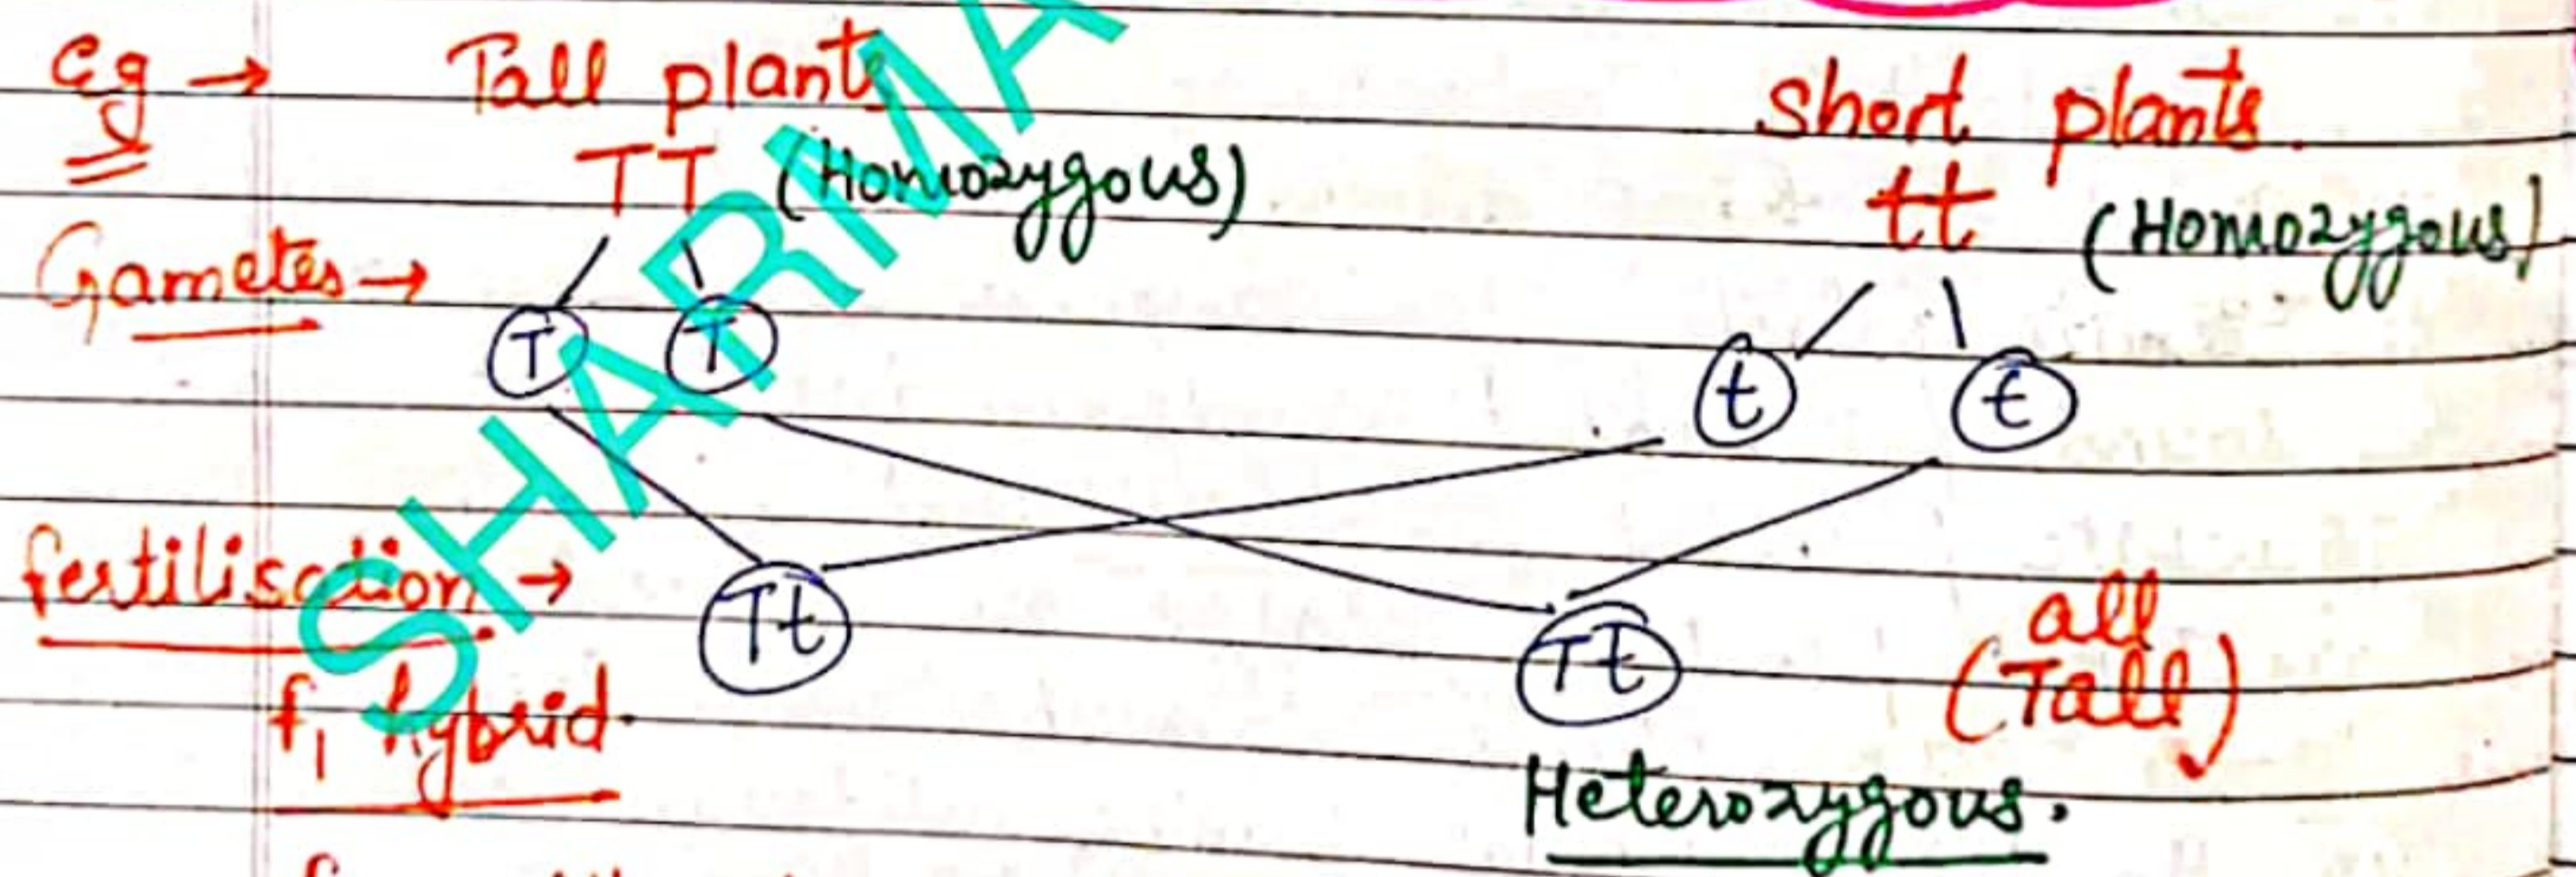 eg → Tall plants short plants.
TT (Homozygous) tt (Homozygous)
Gametes →
T T t t
fertilisation →
Tt Tt all
f1 hybrid. (Tall)
Heterozygous.
SHARMA